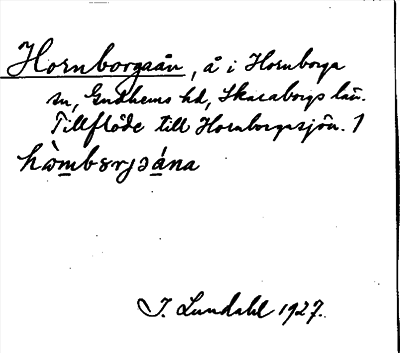 Hornborgaån, å i Hornborga
sn, Gudhems hd, Skaraborgs län.
Tillflöde till Hornborgasjön. 1
hòmbɞrjɔána
I. Lundahl 1927.